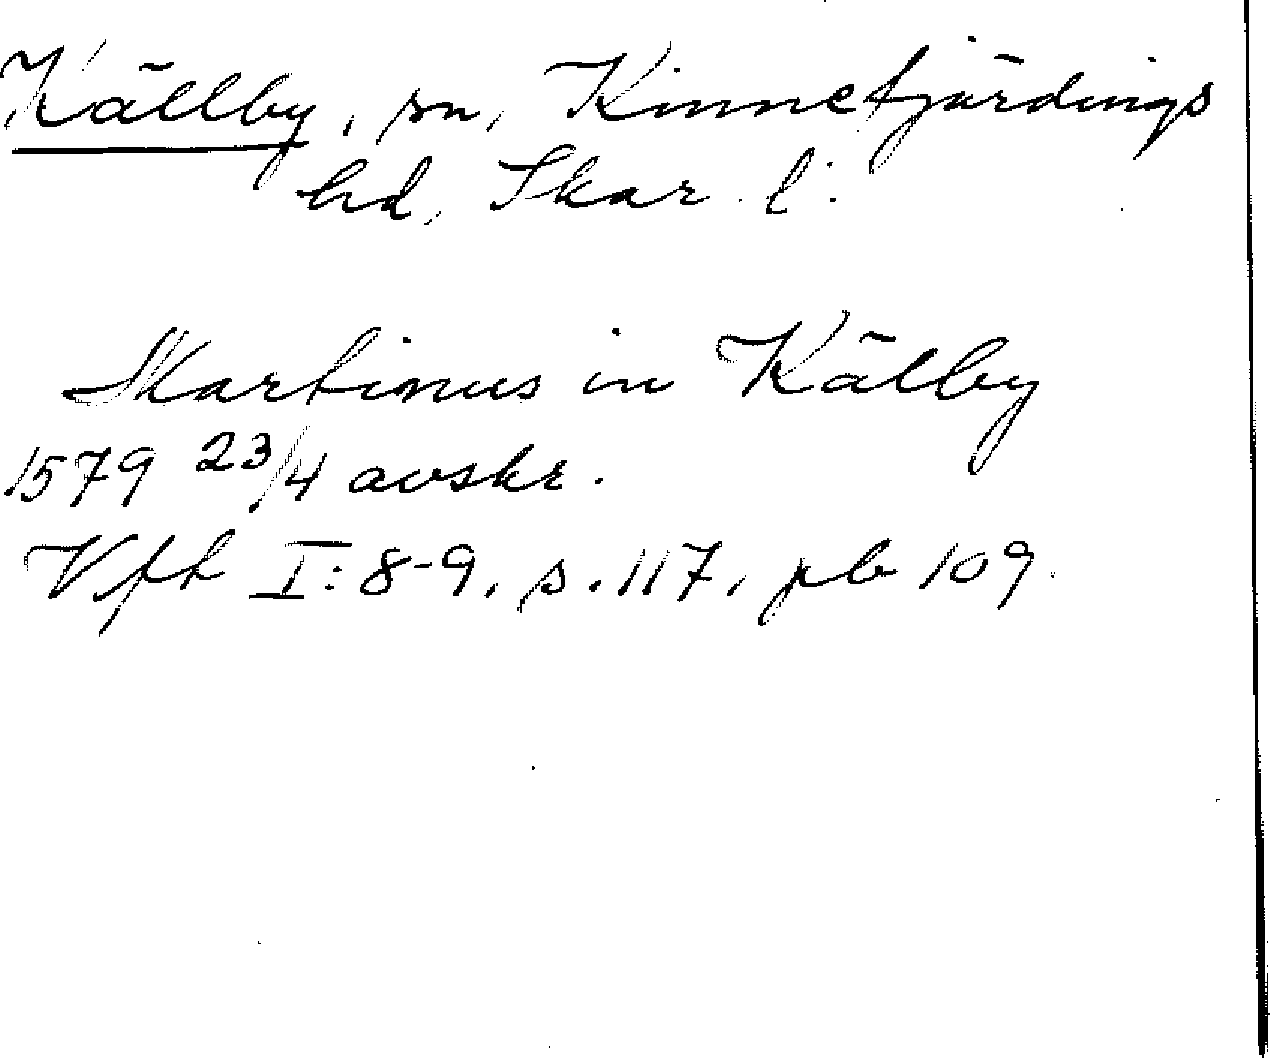 Källby, sn, Kinnefjärdings
hd, Skar. l.
Martinus in Kälby
1579 23/4 avskr.
Vfh I:8-9, s. 117, pb 109.